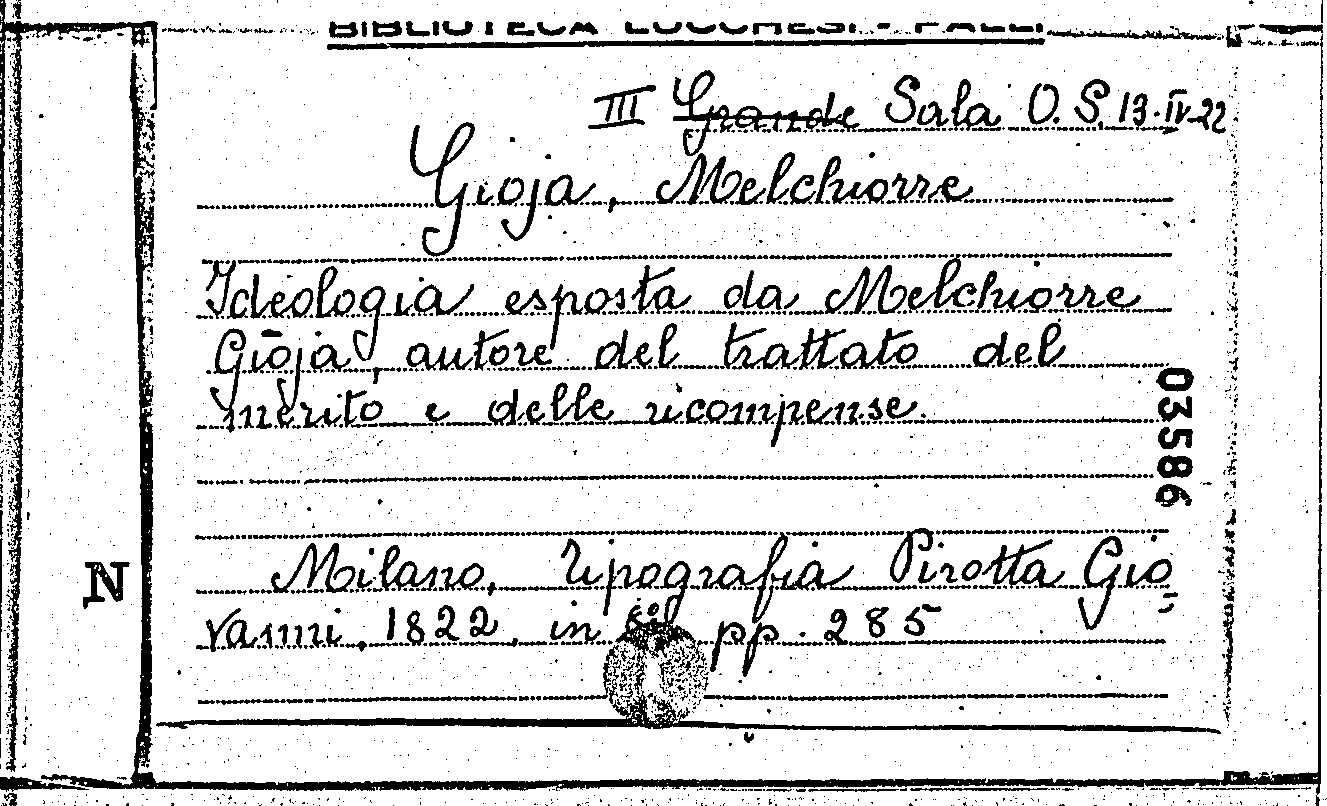 BIBLIOTECA LUCCHESI - PALLI
III Grande Sala O. S. 13-IV-22
Gioja, Melchiorre
Ideologia esposta da Melchiorre
Gioja, autore del trattato del
merito e delle ricompense.
03586
Milano, tipografia Pirotta Gio
N
vanni, 1822, in pp. 285